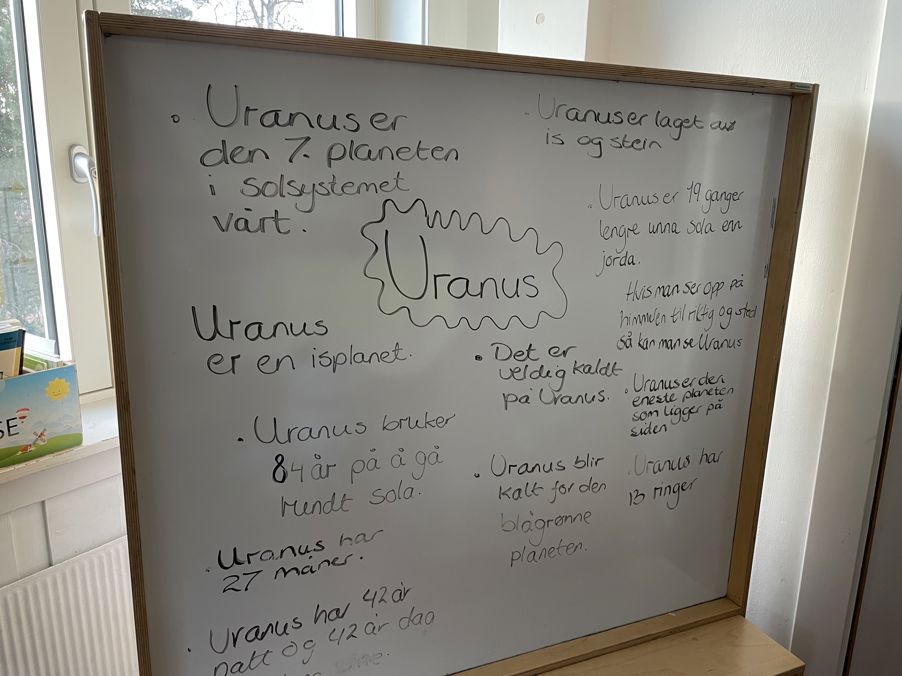 Uranus er
den 7. planeten
i solsystemet
vårt.
Uranus
Uranus
er en isplanet.
Uranus bruker
84 år på å gå
rundt sola.
Uranus har
27 måner.
Uranus har 42 år
natt og 42 år dag
Det er
veldig kaldt
på Uranus.
Uranus blir
kalt for den
blågrønne
planeten.
Uranus er laget av
is og stein
Uranus er 19 ganger
lengre unna sola enn
jorda.
Hvis man ser opp på
himmelen til riktig og sted
så kan man se Uranus
Uranus er den
eneste planeten
som ligger på
siden
Uranus har
13 ringer
SE